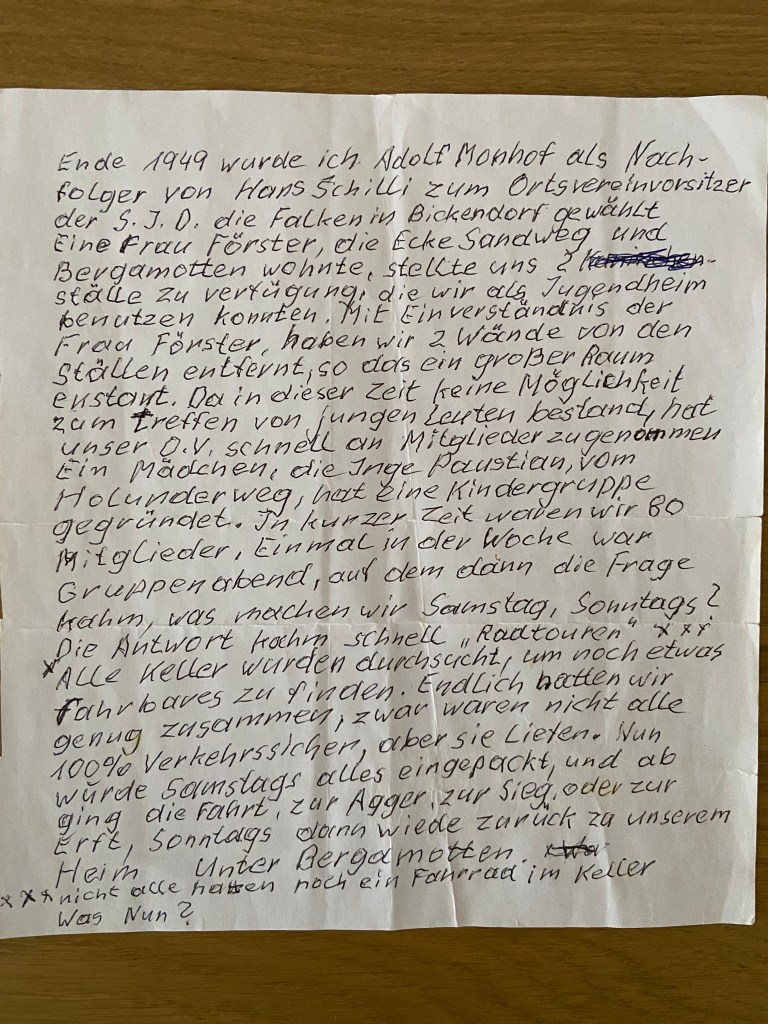 Ende 1949 wurde ich Adolf Monhof als Nach-
folger von Hans Schilli zum Ortsvereinvorsitzer
der S.J.D. die Falken in Bickendorf gewählt
Eine Frau Förster, die Ecke Sandweg und
Bergamotten wohnte, stellte uns 2
ställe zu verfügung, die wir als Jugendheim
benutzen konnten. Mit Einverständnis der
Frau Förster, haben wir 2 Wände von den
Ställen entfernt, so das ein großer Raum
enstant. Da in dieser Zeit keine Möglichkeit
zum Treffen von jungen Leuten bestand, hat
unser O.V. schnell an Mitglieder zugenommen
Ein Mädchen, die Inge Paustian, vom
Holunderweg, hat eine Kindergruppe
gegründet. In kurzer Zeit waren wir 80
Mitglieder, Einmal in der Woche war
Gruppenabend, auf dem dann die Frage
kahm, was machen wir Samstag, Sonntags?
Die Antwort kahm schnell „Radtouren" x x x
x Alle Keller wurden durchsucht, um noch etwas
fahrbares zu finden. Endlich hatten wir
genug zusammen, zwar waren nicht alle
100% Verkehrssicher, aber sie Liefen. Nun
wurde Samstags alles eingepackt, und ab
ging die Fahrt, zur Agger, zur Sieg, oder zur
Erft, Sonntags dann wiede zurück zu unserem
Heim Unter Bergamotten.
x x x nicht alle hatten noch ein Fahrrad im Keller
Was Nun?